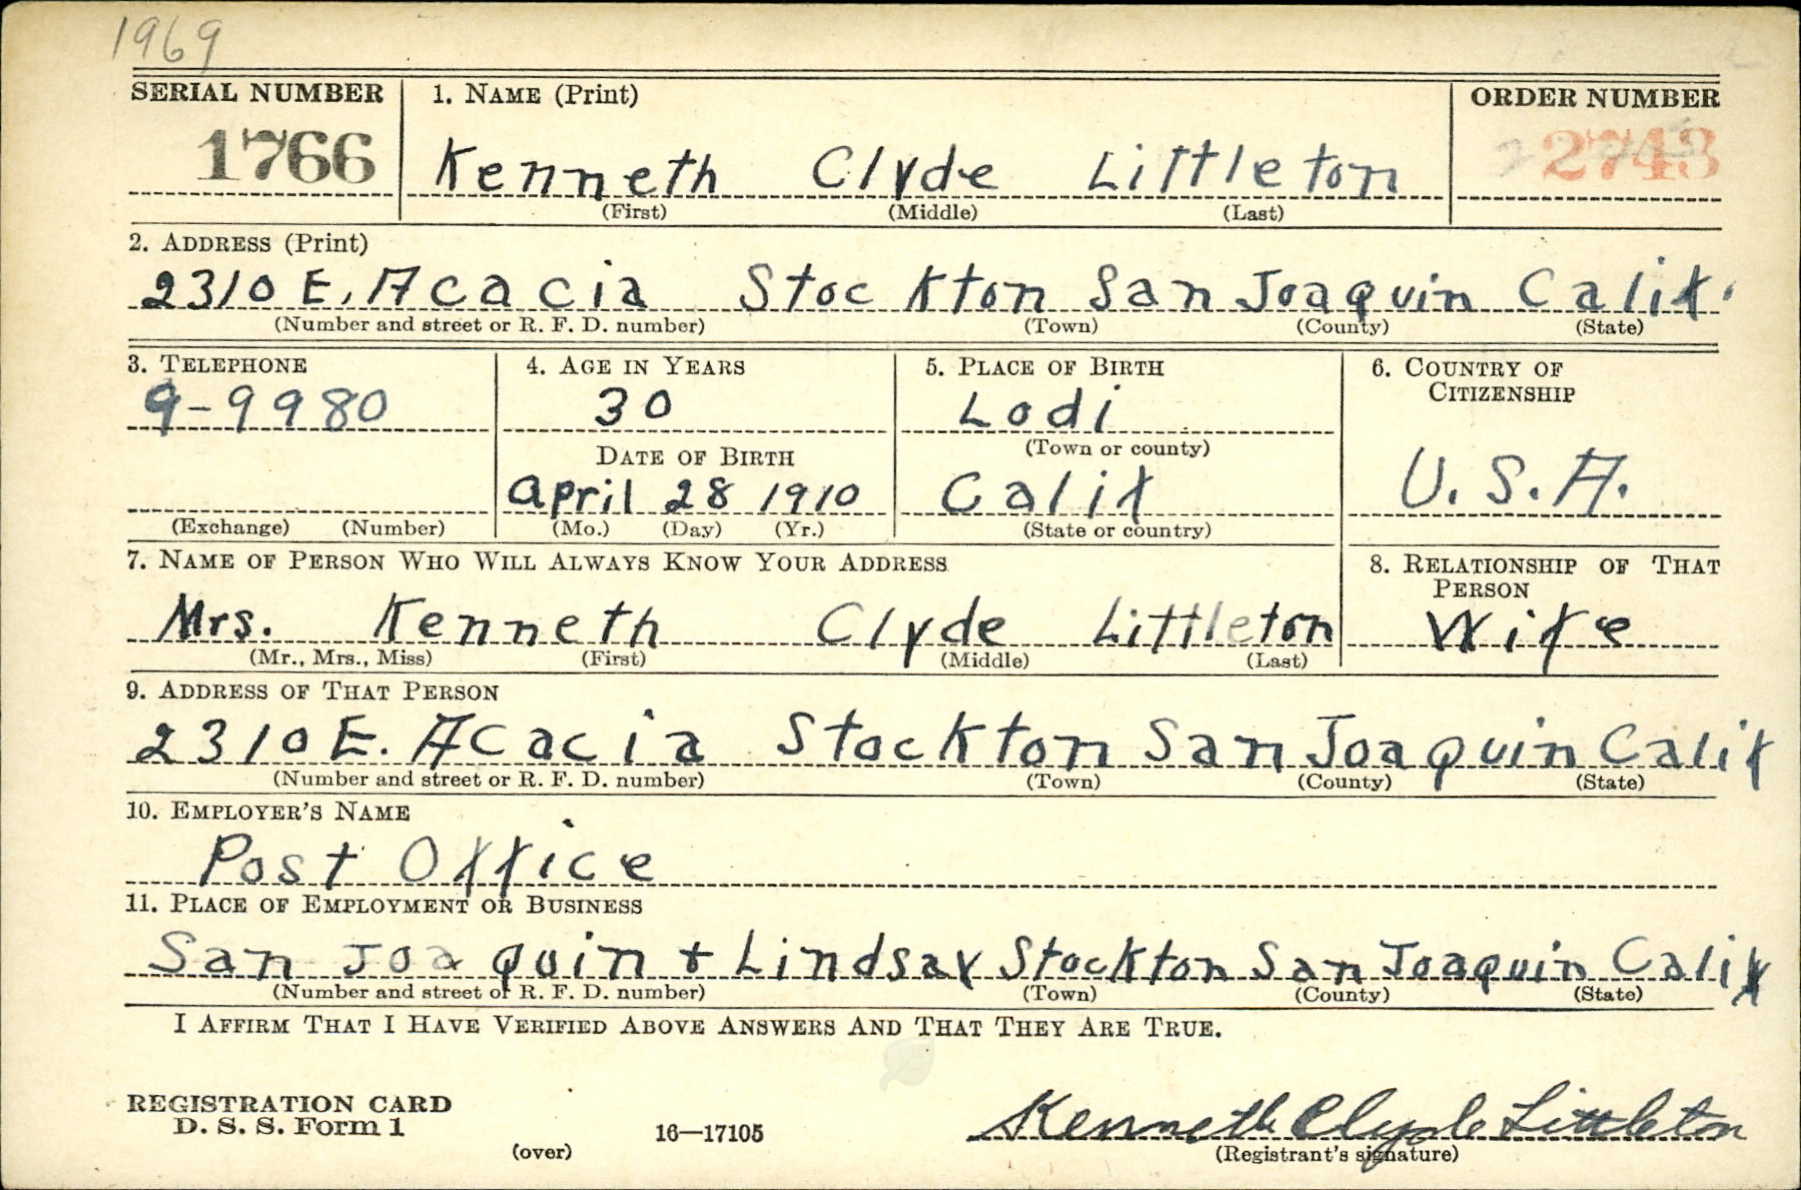 1969
SERIAL NUMBER 1. NAME (Print) ORDER NUMBER
1766 Kenneth Clyde Littleton
(First) (Middle) (Last)
2. ADDRESS (Print)
2310 E. Acacia Stockton San Joaquin Calif.
(Number and street or R. F. D. number) (Town) (County) (State)
3. TELEPHONE 4. AGE IN YEARS 5. PLACE OF BIRTH 6. COUNTRY OF CITIZENSHIP
9-9980 30 Lodi
DATE OF BIRTH (Town or county)
April 28 1910 Calif U.S.A.
(Exchange) (Number) (Mo.) (Day) (Yr.) (State or country)
7. NAME OF PERSON WHO WILL ALWAYS KNOW YOUR ADDRESS 8. RELATIONSHIP OF THAT PERSON
Mrs. Kenneth Clyde Littleton Wife
(Mr., Mrs., Miss) (First) (Middle) (Last)
9. ADDRESS OF THAT PERSON
2310 E. Acacia Stockton San Joaquin Calif
(Number and street or R. F. D. number) (Town) (County) (State)
10. EMPLOYER'S NAME
Post Office
11. PLACE OF EMPLOYMENT OR BUSINESS
San Joaquin + Lindsay Stockton San Joaquin Calif
(Number and street or R. F. D. number) (Town) (County) (State)
I AFFIRM THAT I HAVE VERIFIED ABOVE ANSWERS AND THAT THEY ARE TRUE.
REGISTRATION CARD
D. S. S. Form 1
(over) 16—17105 Kenneth Clyde Littleton
(Registrant's signature)